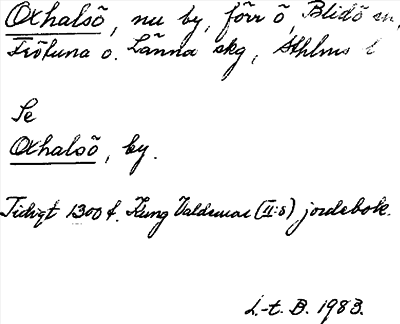 Oxhalsö, nu by, förr ö, Blidö sn,
Fröfuna o. Länna skg, Sthlms l
Se
Oxhalsö, by.
Tidigt 1300 t. Kung Valdemar (II:s) jordebok.
L.-t. B. 1983.